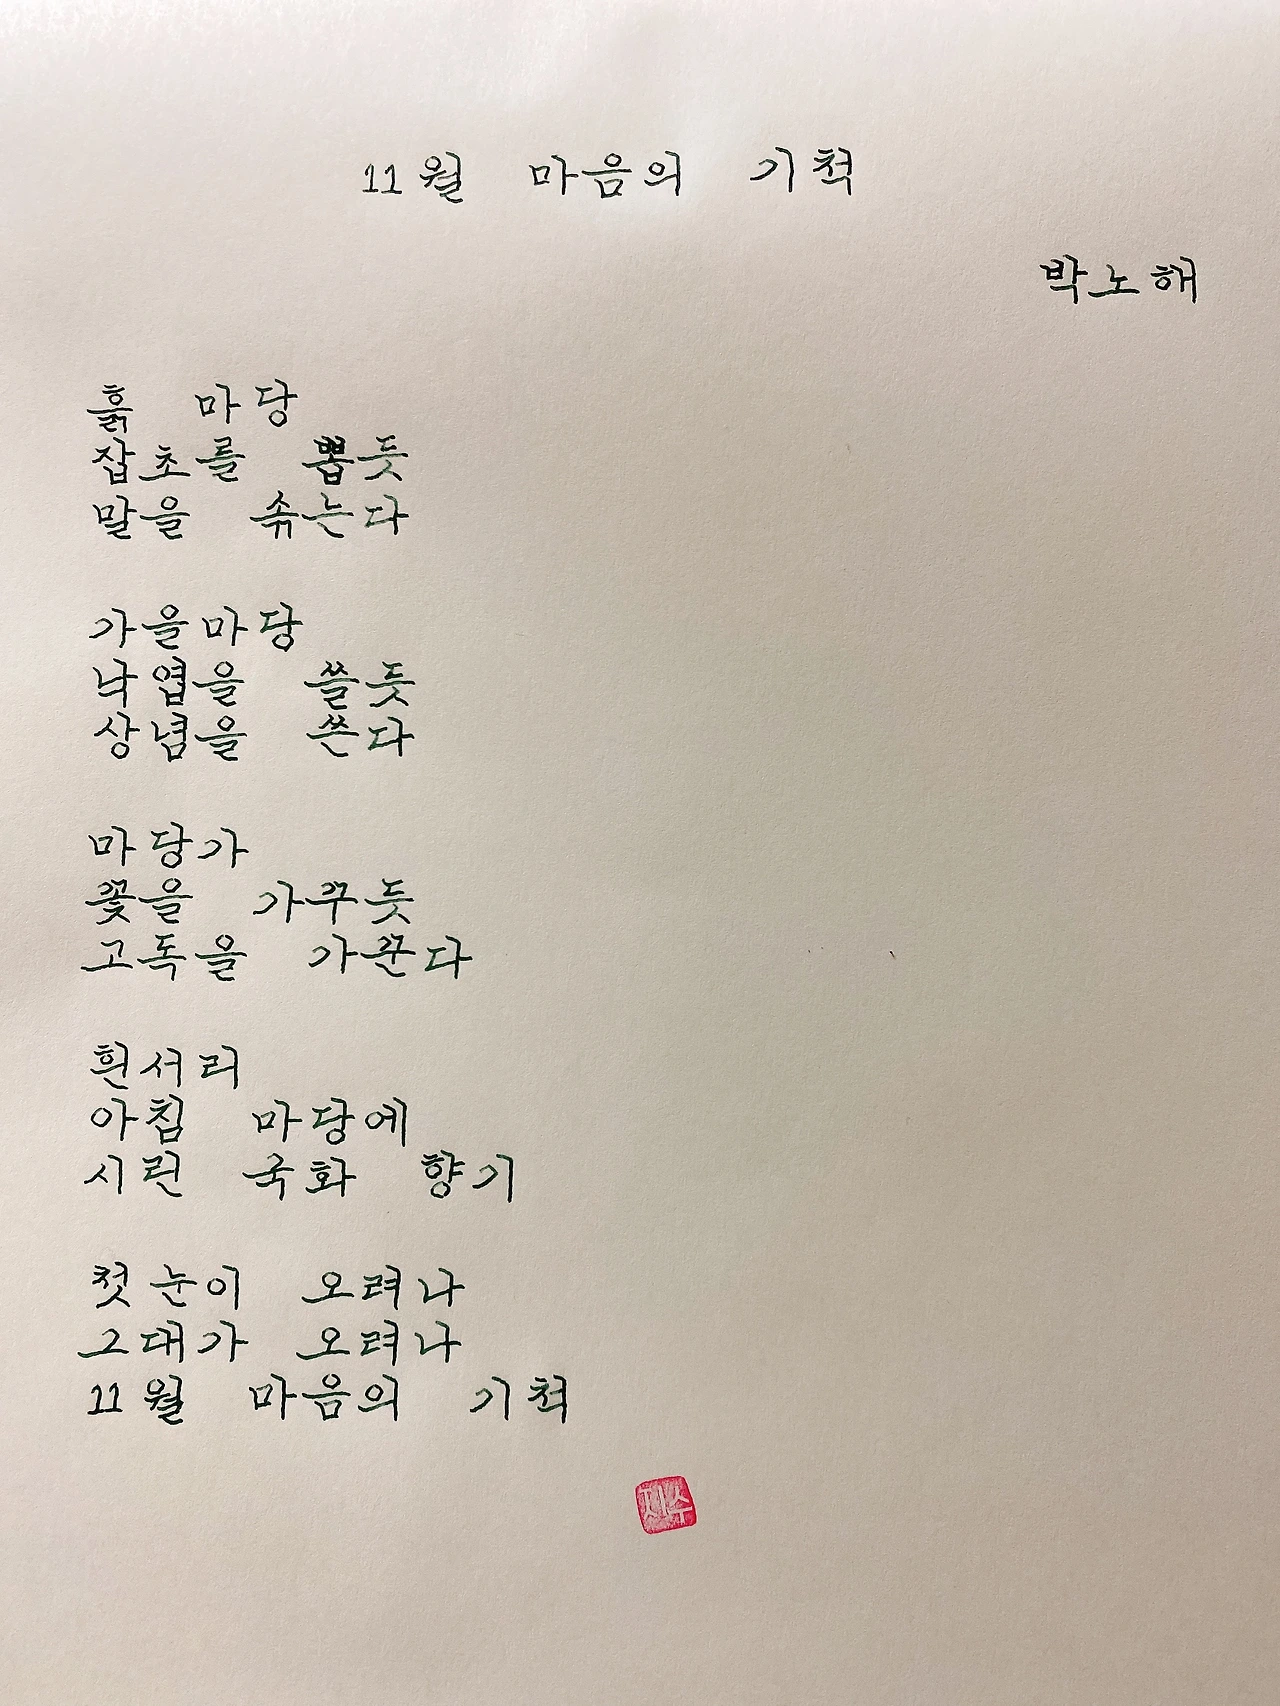 11월 마음의 기척
박노해
흙 마당
잡초를 뽑듯
말을 솎는다
가을마당
낙엽을 쓸듯
상념을 쓴다
마당가
꽃을 가꾸듯
고독을 가꾼다
흰서리
아침 마당에
시린 국화 향기
첫눈이 오려나
그대가 오려나
11월 마음의 기척